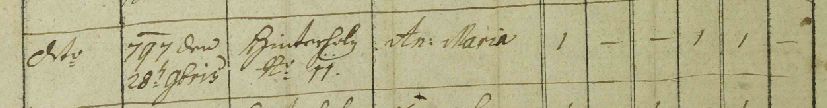 dto 797 den Hinterholz An: Maria 1 — — 1 1 —
28t 9bris No 11.